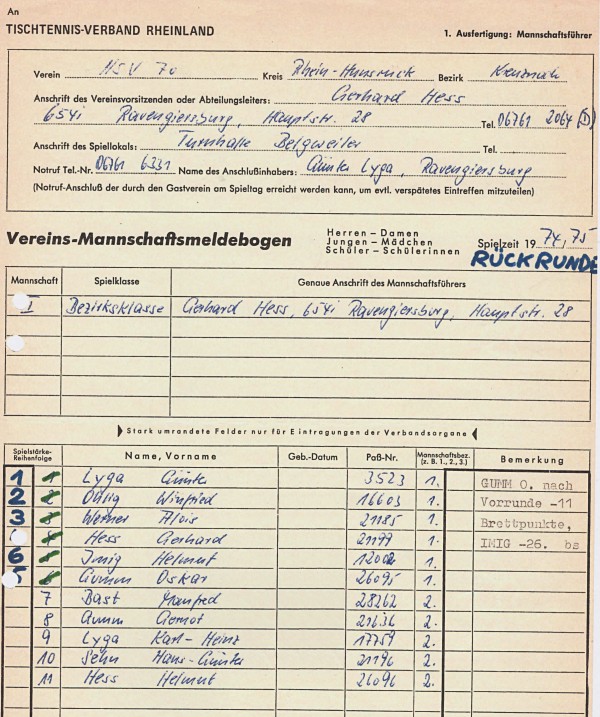 An
TISCHTENNIS-VERBAND RHEINLAND
1. Ausfertigung: Mannschaftsführer
Verein HSV 70 Kreis Rhein-Hunsrück Bezirk Kreuznach
Anschrift des Vereinsvorsitzenden oder Abteilungsleiters: Gerhard Hess
6541 Ravengiersburg, Hauptstr. 28 Tel. 06761 2064 (D)
Anschrift des Spiellokals: Turnhalle Belgweiler Tel.
Notruf Tel.-Nr. 06761 6331 Name des Anschlußinhabers: Günter Lyga, Ravengiersburg
(Notruf-Anschluß der durch den Gastverein am Spieltag erreicht werden kann, um evtl. verspätetes Eintreffen mitzuteilen)
Vereins-Mannschaftsmeldebogen
Herren – Damen
Jungen – Mädchen
Schüler – Schülerinnen
Spielzeit 19 74/75
RÜCKRUNDE
Mannschaft Spielklasse Genaue Anschrift des Mannschaftsführers
I Bezirksklasse Gerhard Hess, 6541 Ravengiersburg, Hauptstr. 28
Stark umrandete Felder nur für Eintragungen der Verbandsorgane
Spielstärke-Reihenfolge Name, Vorname Geb.-Datum Paß-Nr. Mannschaftsbez. (z. B. 1., 2., 3.) Bemerkung
1 Lyga Günter 3523 1. GUMM O. nach
2 Ohlig Winfried 16603 1. Vorrunde -11
3 Werner Alois 21185 1. Brettpunkte,
Hess Gerhard 21199 1. IMIG -26. bs
6 Imig Helmut 12002 1.
5 Gumm Oskar 26095 1.
7 Bast Manfred 28262 2.
8 Gumm Gernot 21636 2.
9 Lyga Karl-Heinz 17759 2.
10 Sehn Hans-Günter 21196 2.
11 Hess Helmut 26096 2.